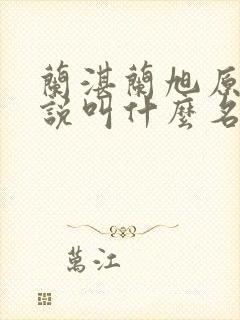 蘭湛蘭旭原
說叫什麼名
萬江